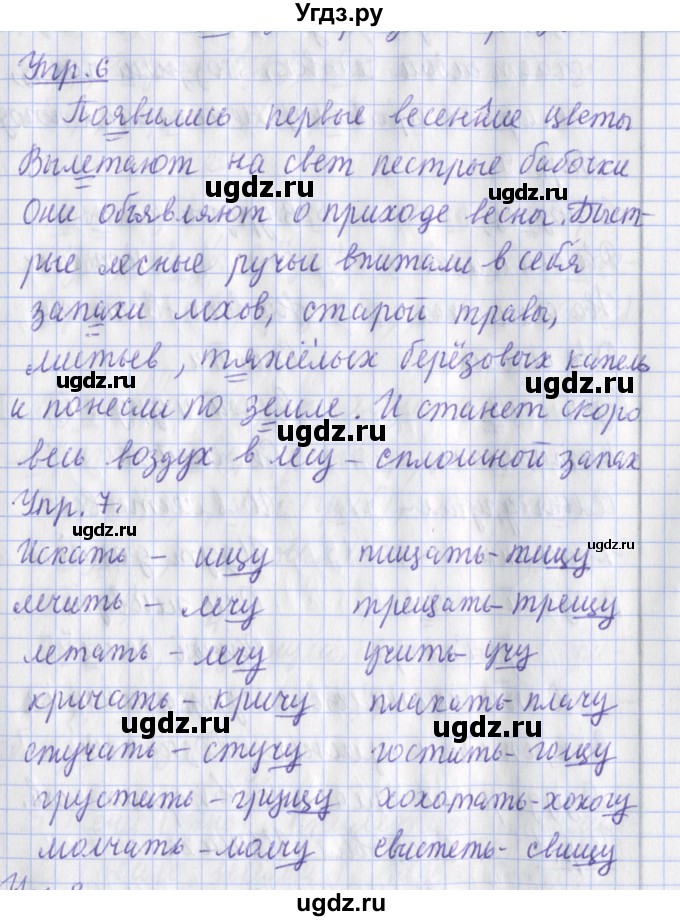 Угдз.ру
Упр. 6
Появились первые весенние цветы
Вылетают на свет пестрые бабочки
ugdz.ru
ugdz.ru
Они объявляют о приходе весны. Быст-
рые лесные ручьи впитали в себя
запахи мхов, старой травы,
листьев, тяжёлых берёзовых капель
ugdz.ru
ugdz.ru
и понесли по земле. И станет скоро
весь воздух в лесу - сплошной запах
ugdz.ru
Упр. 7.
ugdz.ru
ugdz.ru
Искать - ищу пищать - пищу
лечить - лечу трещать - трещу
ugdz.ru
летать - лечу учить - учу
кричать - кричу плакать - плачу
ugdz.ru
стучать - стучу гостить - гощу
грустить - грущу хохотать - хохочу
молчать - молчу свистеть - свищу
ugdz.ru
ugdz.ru